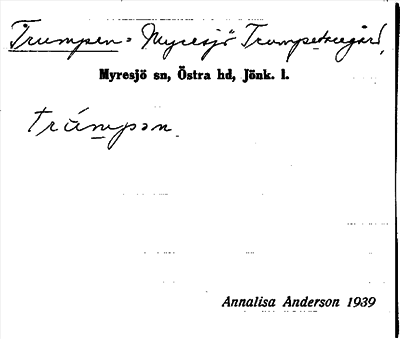 Trumpen = Myresjö Trumpetaregård,
Myresjö sn, Östra hd, Jönk. l.
trúmpən.
Annalisa Anderson 1939